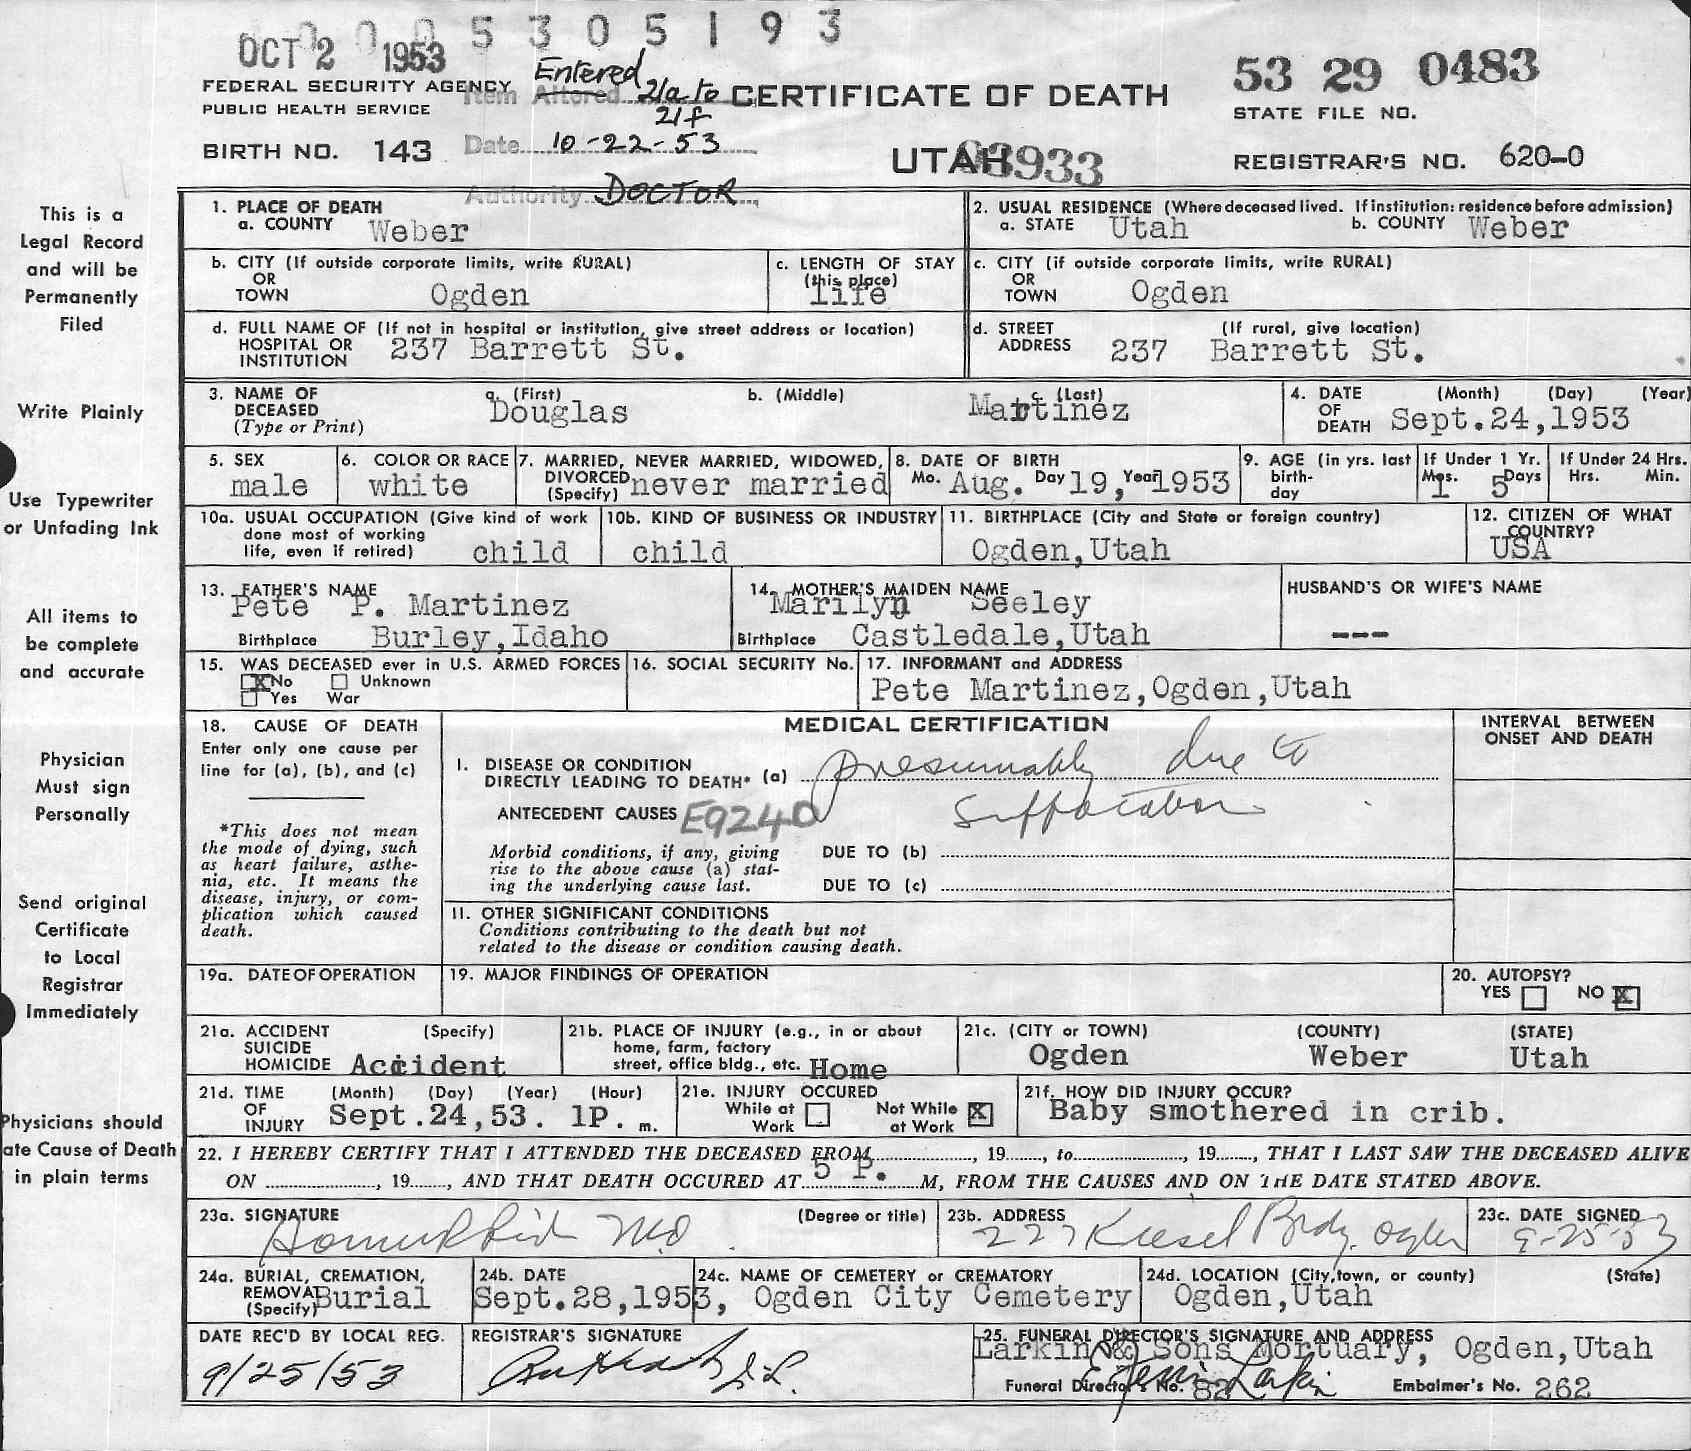 0 0 0 5 3 0 5 1 9 3
OCT 2 1953
FEDERAL SECURITY AGENCY
PUBLIC HEALTH SERVICE
BIRTH NO. 143
Entered
Item Altered 21a to 21f
Date 10-22-53
Authority DOCTOR
CERTIFICATE OF DEATH
UTAH
53 29 0483
STATE FILE NO.
REGISTRAR'S NO. 620-0
This is a
Legal Record
and will be
Permanently
Filed
Write Plainly
Use Typewriter
or Unfading Ink
All items to
be complete
and accurate
Physician
Must sign
Personally
Send original
Certificate
to Local
Registrar
Immediately
Physicians should
ate Cause of Death
in plain terms
1. PLACE OF DEATH
a. COUNTY Weber
2. USUAL RESIDENCE (Where deceased lived. If institution: residence before admission)
a. STATE Utah b. COUNTY Weber
b. CITY (If outside corporate limits, write RURAL)
OR
TOWN Ogden
c. LENGTH OF STAY
(this place)
life
c. CITY (if outside corporate limits, write RURAL)
OR
TOWN Ogden
d. FULL NAME OF (If not in hospital or institution, give street address or location)
HOSPITAL OR
INSTITUTION 237 Barrett St.
d. STREET (If rural, give location)
ADDRESS 237 Barrett St.
3. NAME OF
DECEASED
(Type or Print)
a. (First) b. (Middle) c. (Last)
Douglas Martinez
4. DATE (Month) (Day) (Year)
OF
DEATH Sept.24,1953
5. SEX
male
6. COLOR OR RACE
white
7. MARRIED, NEVER MARRIED, WIDOWED,
DIVORCED
(Specify) never married
8. DATE OF BIRTH
Mo. Aug. Day 19, Year 1953
9. AGE (in yrs. last
birth-
day
If Under 1 Yr.
Mos. Days
1 5
If Under 24 Hrs.
Hrs. Min.
10a. USUAL OCCUPATION (Give kind of work
done most of working
life, even if retired) child
10b. KIND OF BUSINESS OR INDUSTRY
child
11. BIRTHPLACE (City and State or foreign country)
Ogden,Utah
12. CITIZEN OF WHAT
COUNTRY?
USA
13. FATHER'S NAME
Pete P. Martinez
Birthplace Burley,Idaho
14. MOTHER'S MAIDEN NAME
Marilyn Seeley
Birthplace Castledale,Utah
HUSBAND'S OR WIFE'S NAME
---
15. WAS DECEASED ever in U.S. ARMED FORCES
X No Unknown
Yes War
16. SOCIAL SECURITY No.
17. INFORMANT and ADDRESS
Pete Martinez,Ogden,Utah
18. CAUSE OF DEATH
Enter only one cause per
line for (a), (b), and (c)
*This does not mean
the mode of dying, such
as heart failure, asthe-
nia, etc. It means the
disease, injury, or com-
plication which caused
death.
MEDICAL CERTIFICATION
I. DISEASE OR CONDITION
DIRECTLY LEADING TO DEATH* (a) presumably due to
suffocation
ANTECEDENT CAUSES E924D
Morbid conditions, if any, giving
rise to the above cause (a) stat-
ing the underlying cause last.
DUE TO (b)
DUE TO (c)
11. OTHER SIGNIFICANT CONDITIONS
Conditions contributing to the death but not
related to the disease or condition causing death.
INTERVAL BETWEEN
ONSET AND DEATH
19a. DATE OF OPERATION
19. MAJOR FINDINGS OF OPERATION
20. AUTOPSY?
YES NO X
21a. ACCIDENT (Specify)
SUICIDE
HOMICIDE Accident
21b. PLACE OF INJURY (e.g., in or about
home, farm, factory
street, office bldg., etc. Home
21c. (CITY or TOWN) (COUNTY) (STATE)
Ogden Weber Utah
21d. TIME (Month) (Day) (Year) (Hour)
OF
INJURY Sept.24,53. 1P. m.
21e. INJURY OCCURED
While at Work Not While at Work X
21f. HOW DID INJURY OCCUR?
Baby smothered in crib.
22. I HEREBY CERTIFY THAT I ATTENDED THE DECEASED FROM, 19, to, 19, THAT I LAST SAW THE DECEASED ALIVE
ON, 19, AND THAT DEATH OCCURED AT 5 P. M, FROM THE CAUSES AND ON THE DATE STATED ABOVE.
23a. SIGNATURE (Degree or title)
M.D.
23b. ADDRESS
227 Kiesel Bldg. Ogden
23c. DATE SIGNED
9-25-53
24a. BURIAL, CREMATION,
REMOVAL
(Specify) Burial
24b. DATE
Sept.28,1953,
24c. NAME OF CEMETERY or CREMATORY
Ogden City Cemetery
24d. LOCATION (City,town, or county) (State)
Ogden,Utah
DATE REC'D BY LOCAL REG.
9/25/53
REGISTRAR'S SIGNATURE
25. FUNERAL DIRECTOR'S SIGNATURE AND ADDRESS
Larkin & Sons Mortuary, Ogden,Utah
Funeral Director's No. 82 Embalmer's No. 262